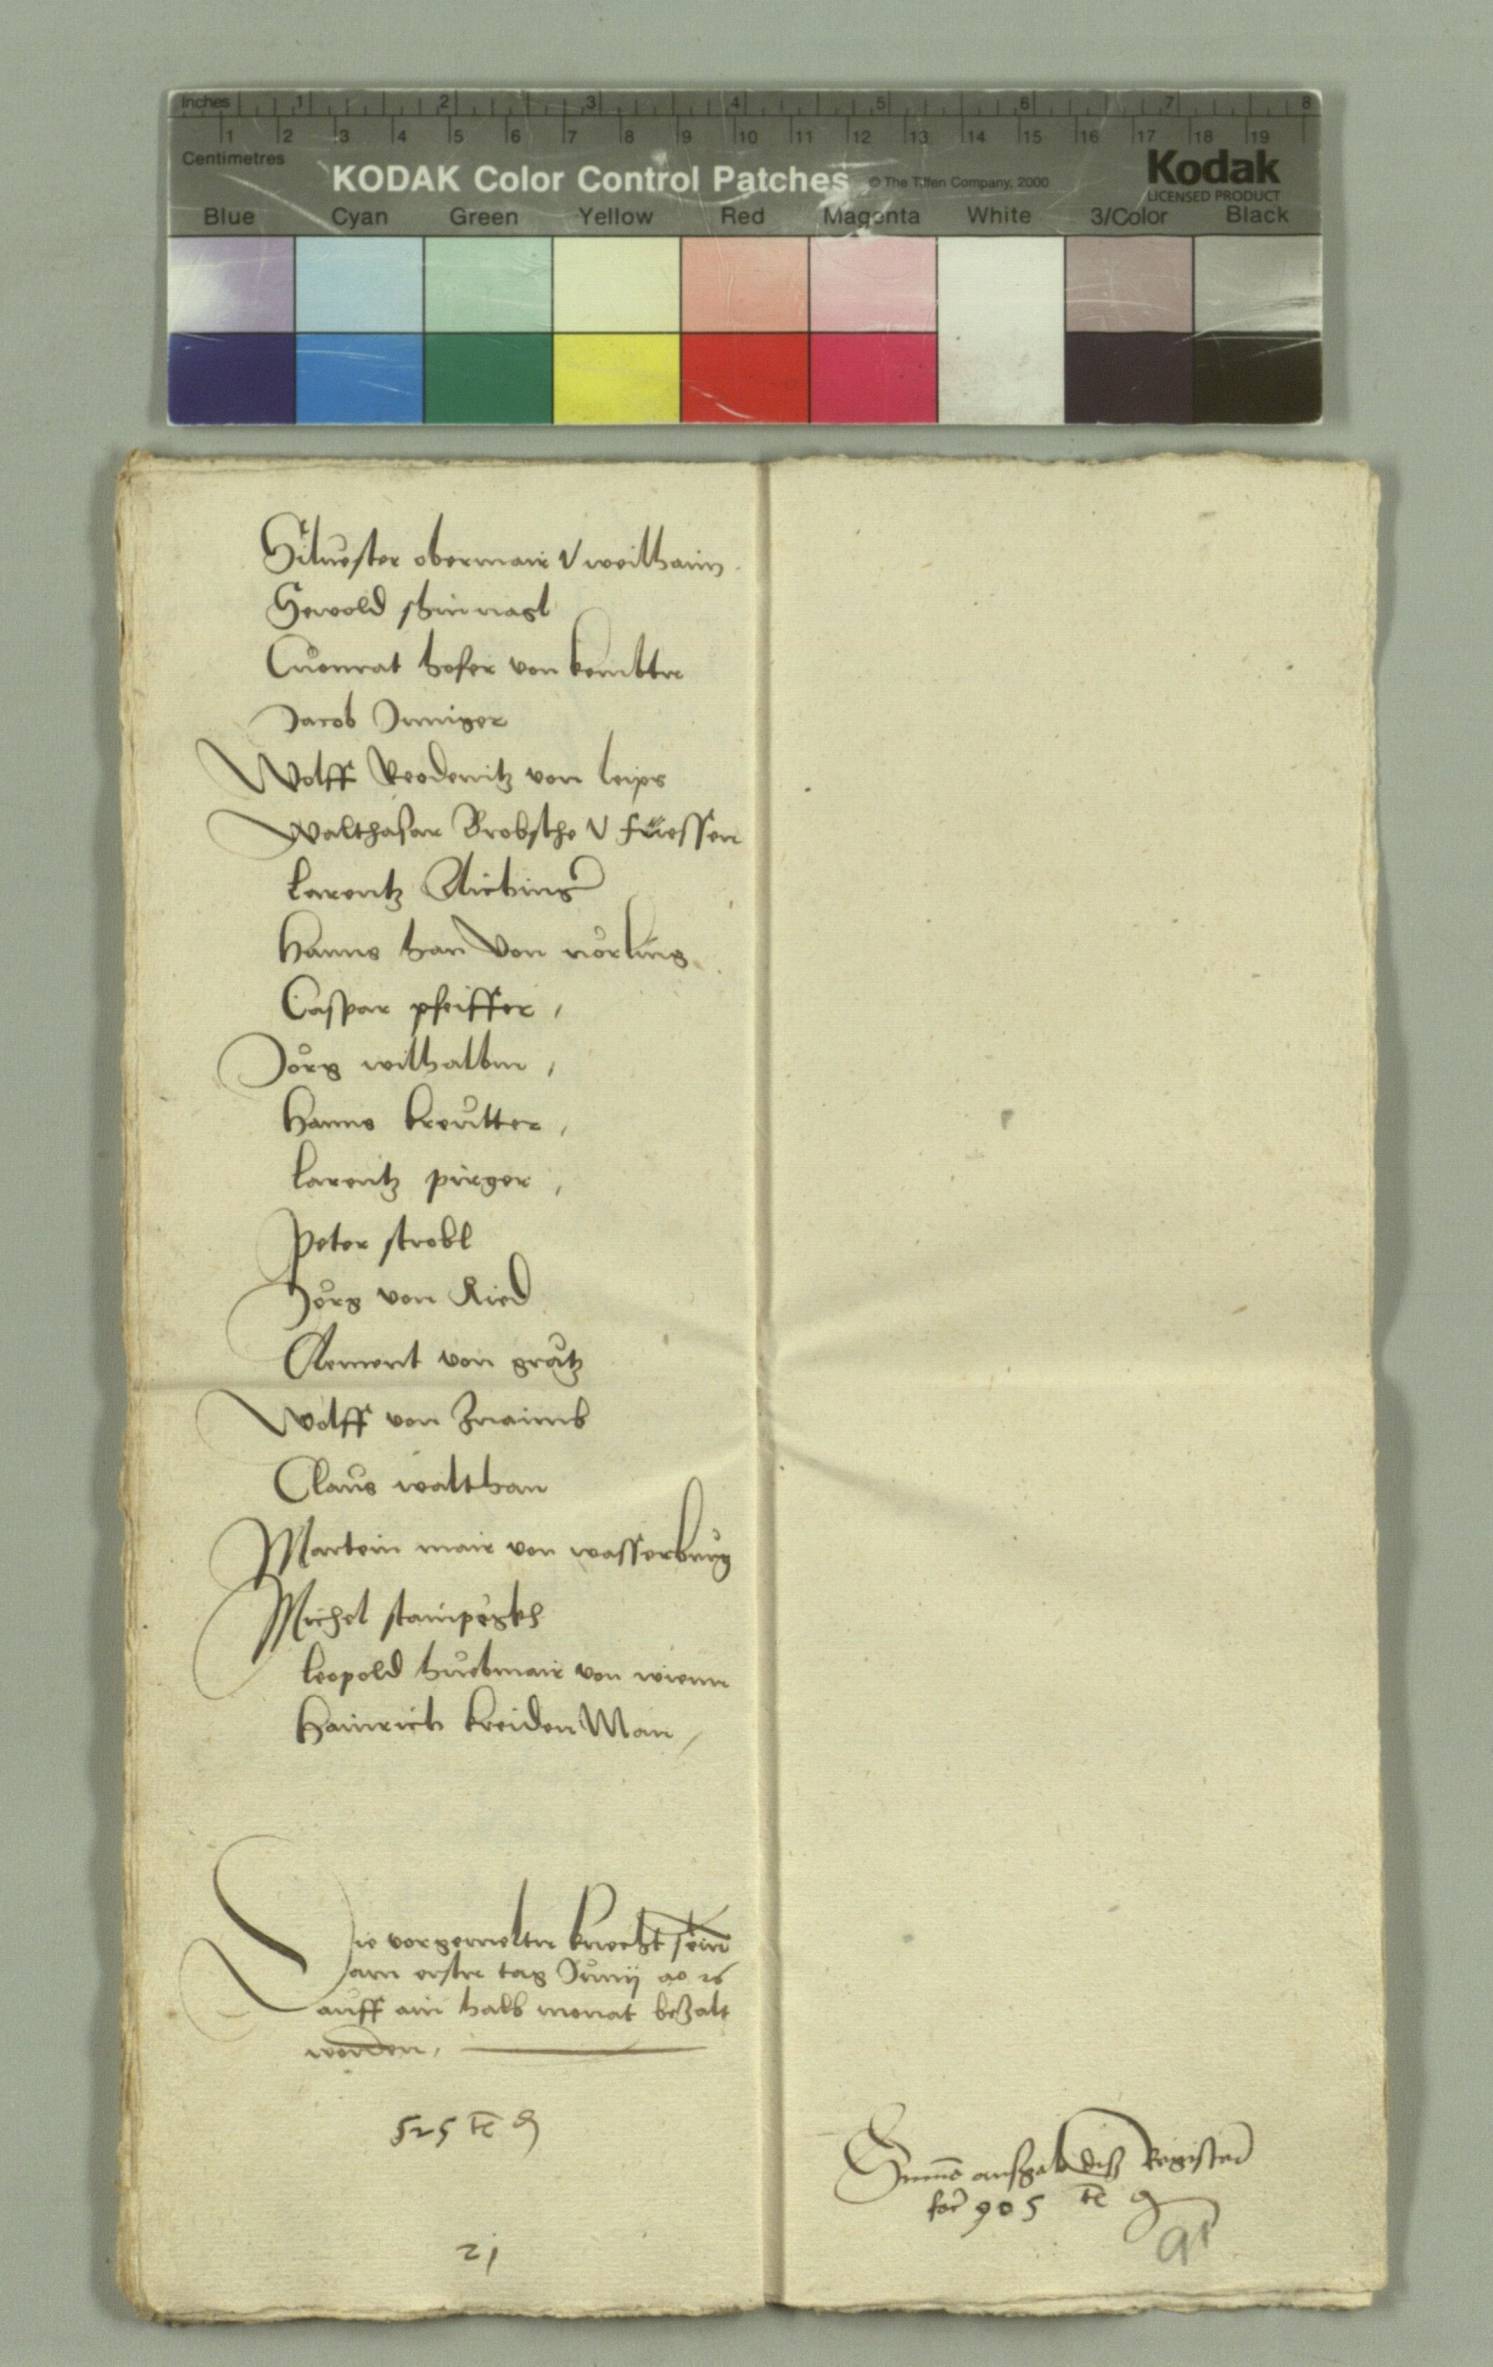 Inches 1 2 3 4 5 6 7 8
1 2 3 4 5 6 7 8 9 10 11 12 13 14 15 16 17 18 19
Centimetres
KODAK Color Control Patches © The Tiffen Company, 2000
Kodak
LICENSED PRODUCT
Blue Cyan Green Yellow Red Magenta White 3/Color Black
Siluester obermair v weilhaim
Sewold
Cuonrat hofer von kembtn
Jacob
Wolff von leips
Walthasar Brobsthe v füessen
Larentz
Hanns han von nörling
Caspar pfeiffer,
Jörg wilhalbm,
Hanns kreutter,
Larentz pirger,
Peter strobl
Jörg von Ried
Clement von grätz
Wolff von Znaimb
Claus walthan
Martein mair von wasserburg
Michel
Leopold huebmair von wienn
Hainrich kreidenman,
Die vorgemeltn knecht sein
am erstn tag Junij ao 26
auff ain halb monat bezalt
worden,
525
21
Summa ausgab diss Register
905
91